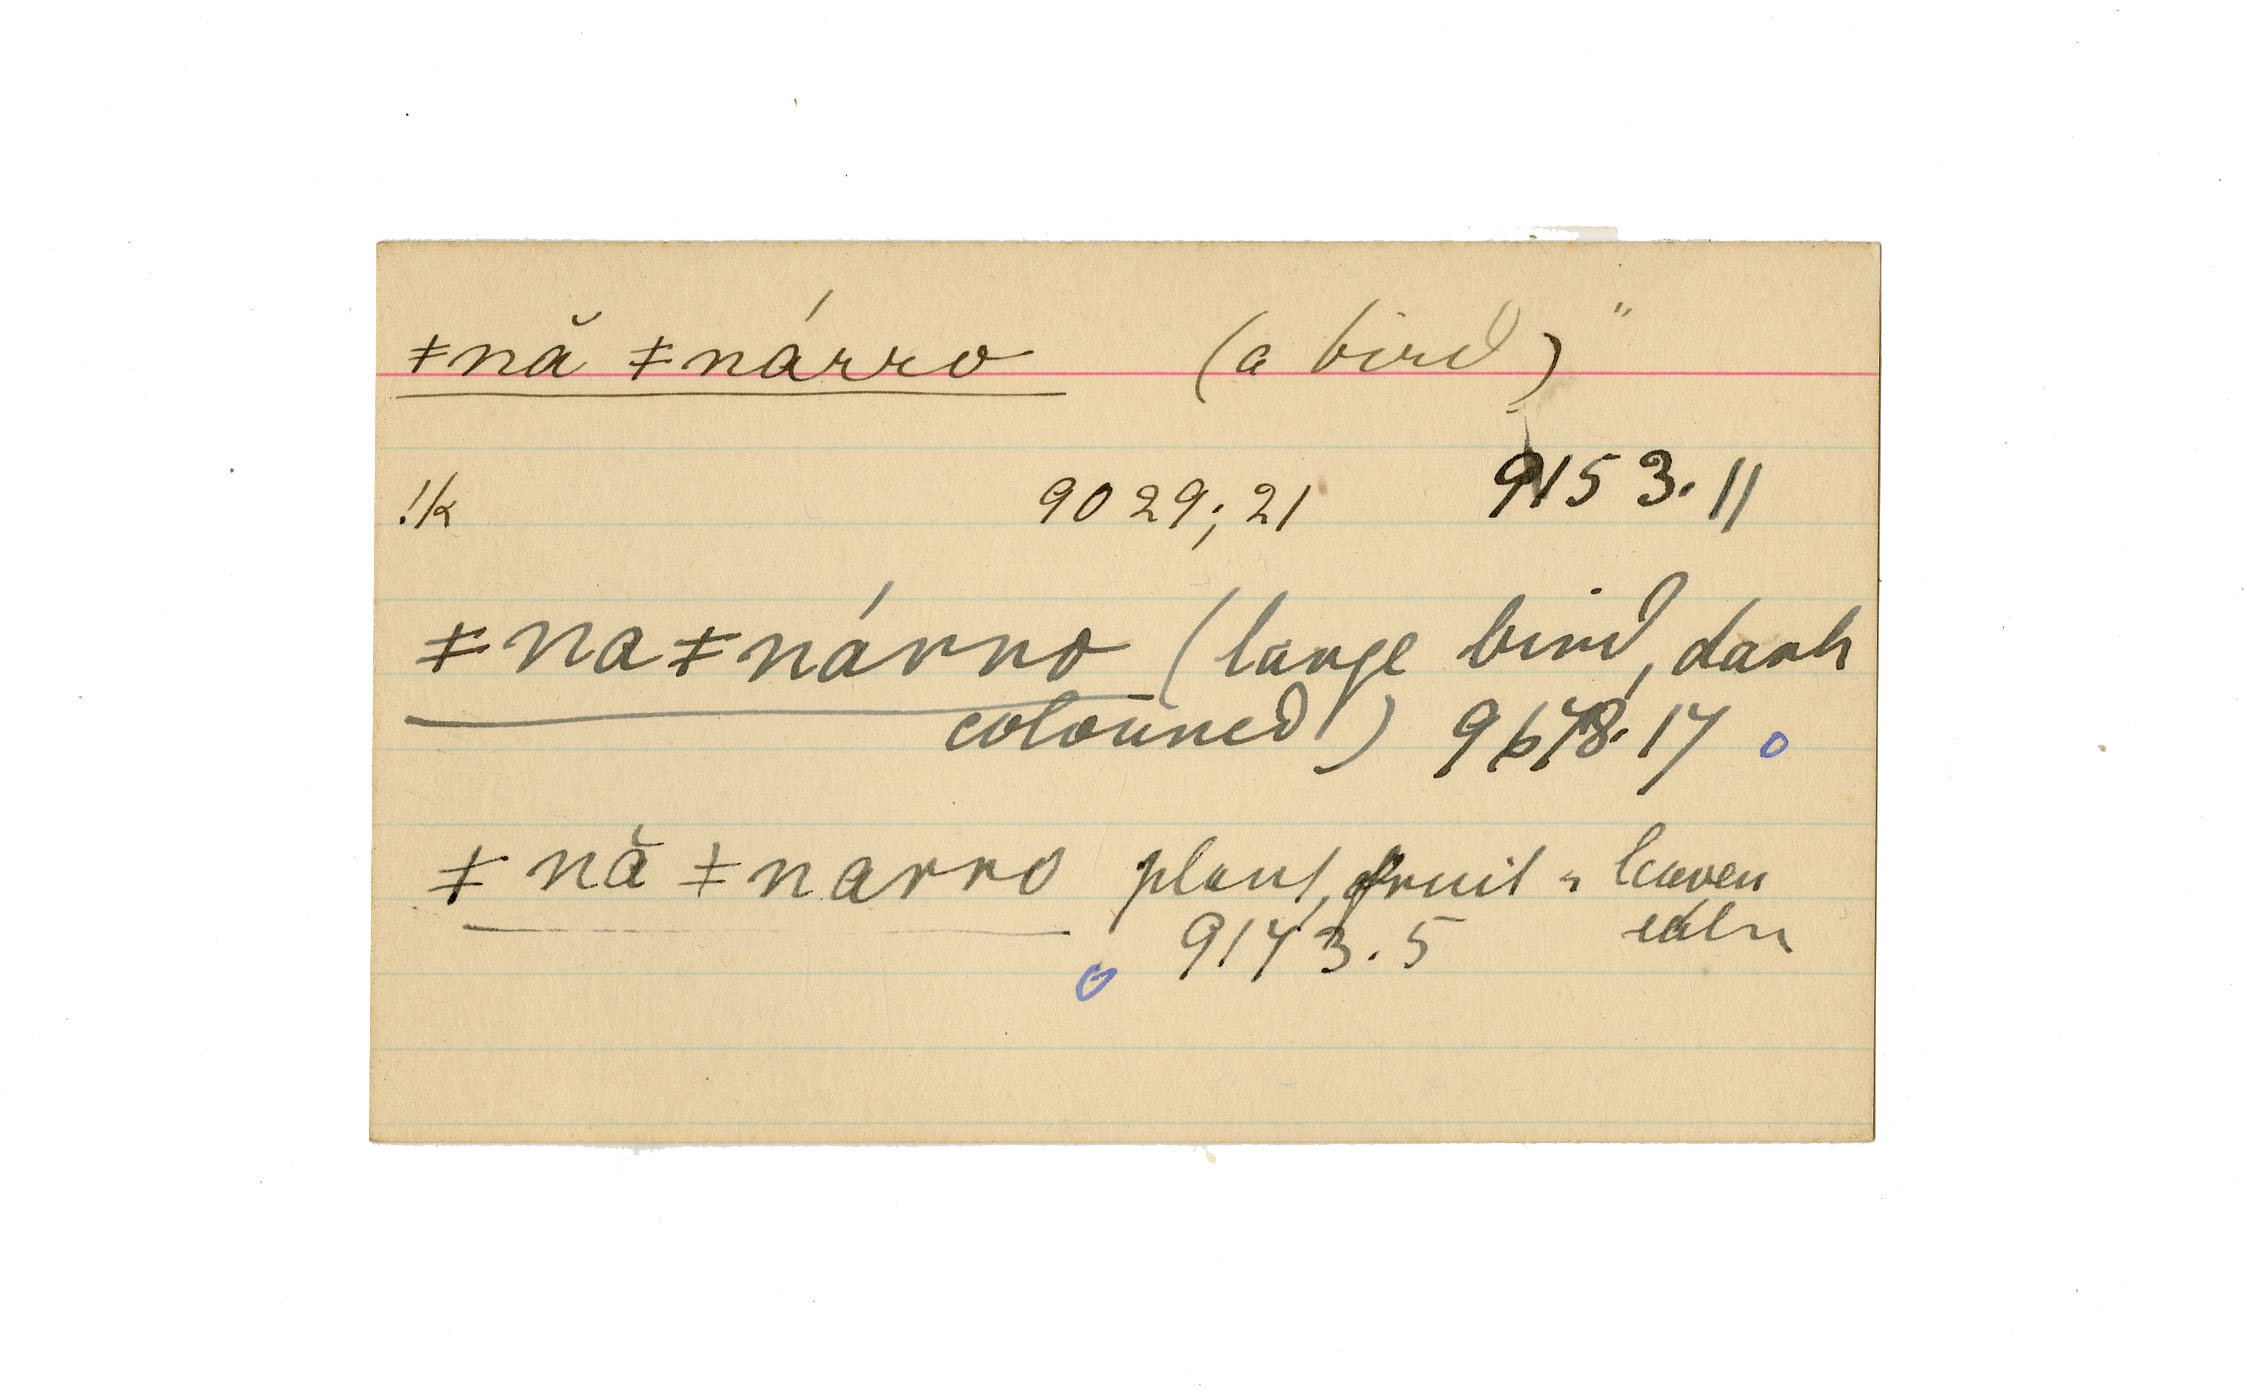 ǂnă ǂnárro (a bird)"
!k 9029; 21 9153. 11
ǂna ǂnárro (large bird, dark
coloured) 9678. 17
ǂnă ǂnarro plant, fruit leaves
9143. 5